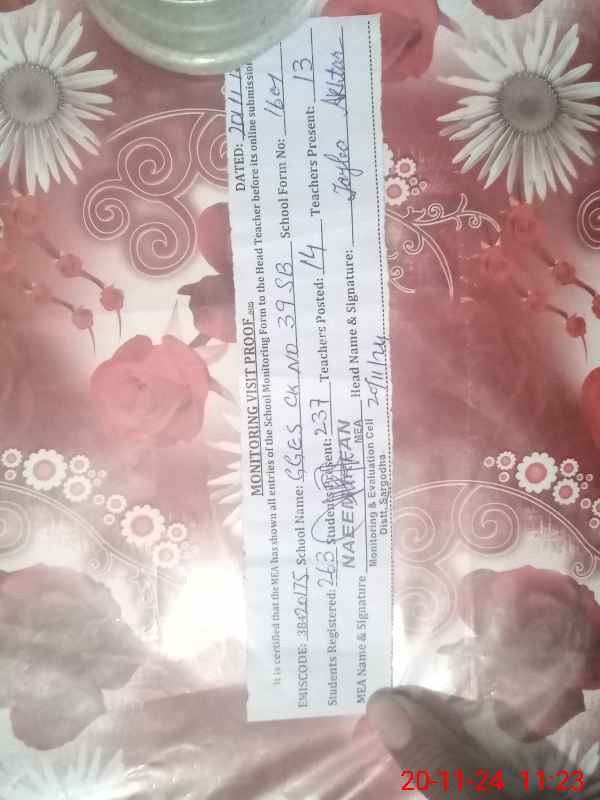 DATED: 20/11/
MONITORING VISIT PROOF
It is certified that the MEA has shown all entries of the School Monitoring Form to the Head Teacher before its online submission
EMISCODE: 38420175 School Name: GGES CK NO 39 SB School Form No: 1601
Students Registered: 263 Students Present: 237 Teachers Posted: 14 Teachers Present: 13
MEA Name & Signature NAEEM Head Name & Signature: Akhtar
MEA 20/11/24
Monitoring & Evaluation Cell
Distt. Sargodha.
20-11-24 11:23